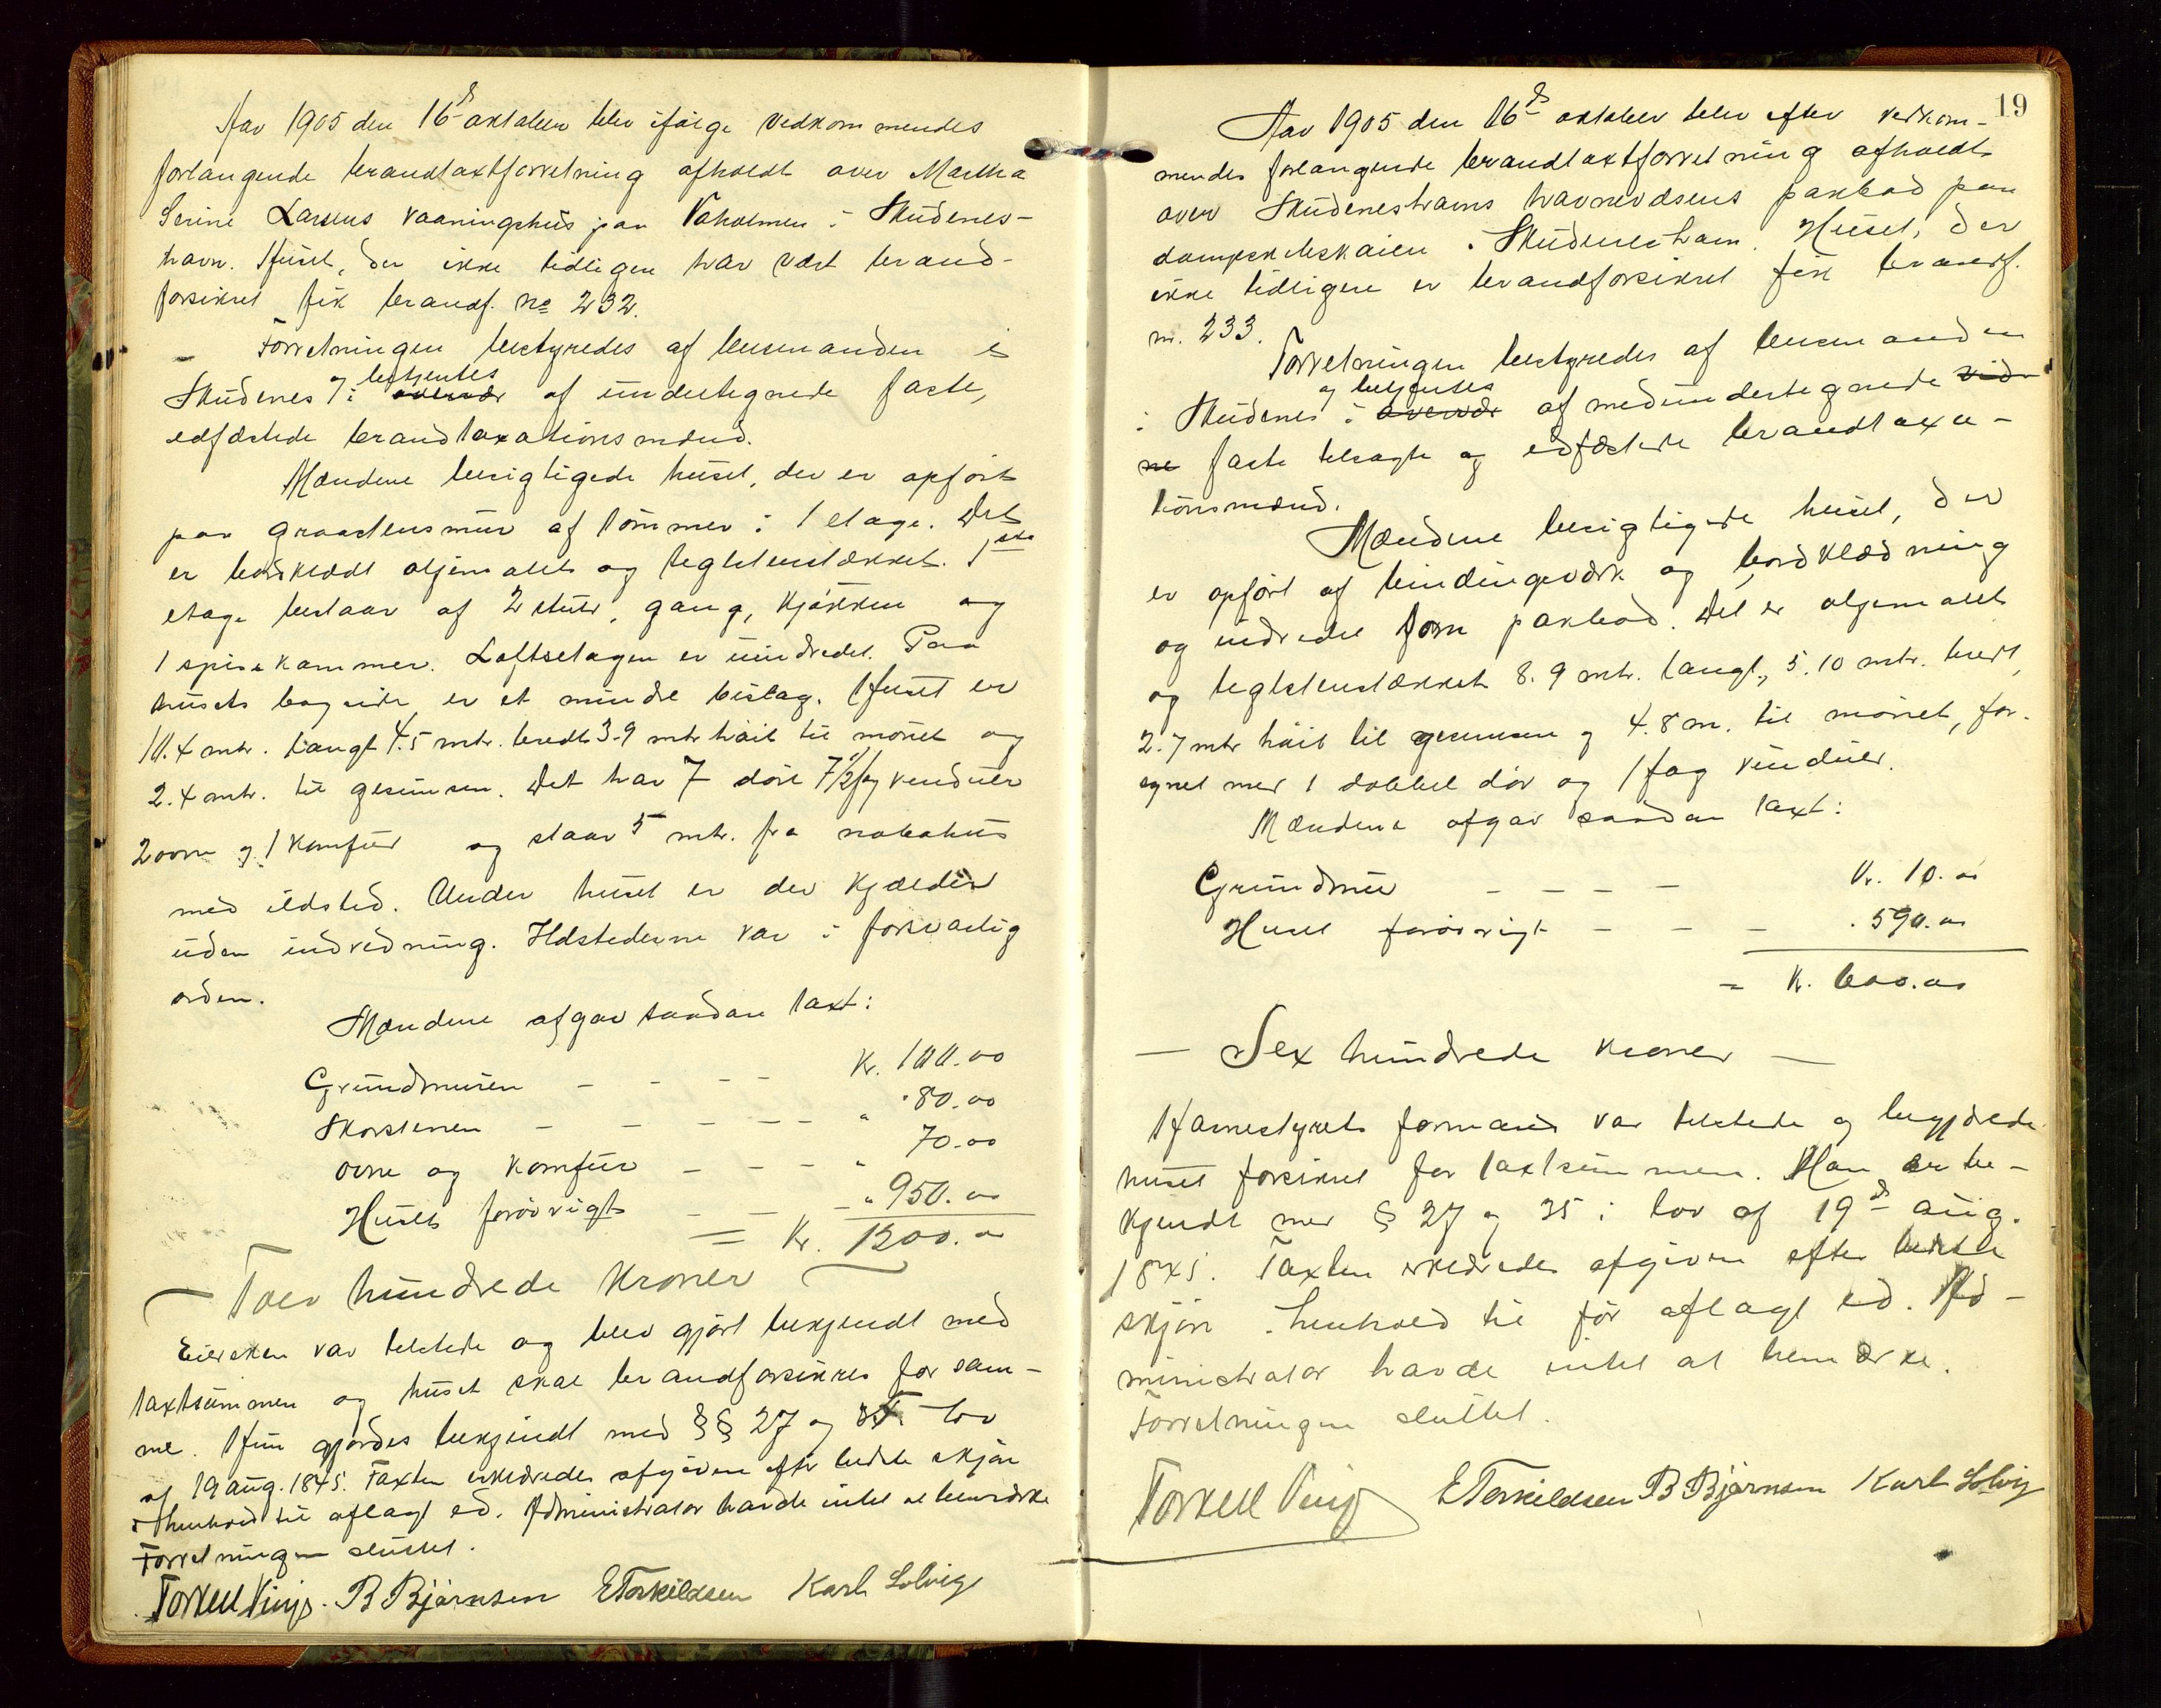 Aar 1905 den 16de oktober blev ifølge vedkommendes
forlangende brandtaxtforretning afholdt over Martha
Serine Larsens vaaningshus paa Vaholmen i Skudenes-
havn. Huset, der ikke tidligere har vært brand-
forsikret fik brandf. No 232.
Forretningen bestyredes af lensmanden i
Skudenes og betjentes i overvær af undertegnede faste,
edfæstede brandtaxationsmænd.
Mændene besigtigede huset, der er opført
paa graastensmur af tømmer i 1 etage. Det
er bordklædt oljemalet og teglstenstækket. 1ste
etage bestaar af 2 stuer, gang, kjøkken og
1 spisekammer. Loftsetagen er uindredet. Paa
husets bagside er et mindre bislag. Huset er
10.4 mtr. langt 4.5 mtr. bredt 3.9 mtr høit til mønet og
2.4 mtr. til gesimsen. Det har 7 døre 7 1/2 fag vinduer
2 ovne og 1 komfur og staar 5 mtr. fra nabohus
med ildsted. Under huset er der kjælder
uden indredning. Ildstederne var i forsvarlig
orden.
Mændene afgav saadan taxt:
Grundmuren - - - - Kr. 100.00
Skorstenen - - - - - " 80.00
Ovne og komfur - - - " 70.00
Huset forøvrigt - - - " 950.00
= Kr. 1200.00
— Tolv hundrede kroner —
Eiersken var tilstede og blev gjort bekjendt med
taxtsummen og huset skal brandforsikres for sam-
me. Hun gjordes bekjendt med §§ 27 og 35 i lov
af 19 aug. 1845. Taxten erklæredes afgiven efter bedste skjøn
i henhold til aflagt ed. Administrator havde intet at bemærke
Forretningen sluttet.
Torkell Vinje. B Bjørnsen E Torkildsen Karl Solvig
19
Aar 1905 den 16de oktober blev efter vedkom-
mendes forlangende brandtaxtforretning afholdt
over Skudeneshavns havnevæsens pakbod paa
dampskibskaien i Skudeneshavn. Huset, der
ikke tidligere er brandforsikret fik brandf.
nr. 233.
Forretningen bestyredes af lensmanden
i Skudenes og betjentes i overvær af medundertegnede vid-
ne faste tilsagte og edfæstede brandtaxa-
tionsmænd.
Mændene besigtigede huset, der
er opført af bindingsværk og bordklædning
og indredet som pakbod. Det er oljemalet
og teglstenstækket 8.9 mtr. langt, 5.10 mtr. bredt,
2.7 mtr høit til gesimsen og 4.8 m. til mønet, for-
synet med 1 dobbel dør og 1 fag vinduer.
Mændene afgav saadan taxt:
Grundmur - - - - Kr. 10.00
Huset forøvrigt - - - " 590.00
= Kr. 600.00
— Sex hundrede kroner —
Havnestyrets formand var tilstede og begjærede
huset forsikret for taxtsummen. Han er be-
kjendt med § 27 og 35 i lov af 19de aug.
1845. Taxten erklæredes afgiven efter bedste
skjøn i henhold til før aflagt ed. Ad-
ministrator havde intet at bemærke.
Forretningen sluttet.
Torkell Vinje E Torkildsen B Bjørnsen Karl Solvig